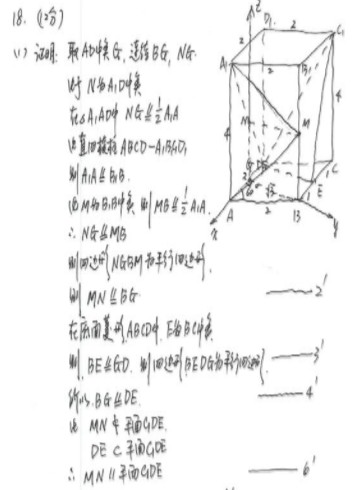 18. (12分)
(1) 证明: 取AD中点G, 连接BG, NG.
N为A₁D中点
在△A₁AD中 NG⫽½A₁A
由直四棱柱ABCD-A₁B₁C₁D₁
则A₁A⫽B₁B.
由M为B₁B中点 则MB⫽½A₁A.
∴ NG⫽MB
则四边形NGBM为平行四边形.
则 MN⫽BG —— 2'
在底面菱形ABCD中, E为BC中点
则 BE⫽GD. 则四边形BEDG为平行四边形. —— 3'
所以 BG⫽DE. —— 4'
MN ⊄ 平面C₁DE.
DE ⊂ 平面C₁DE
∴ MN∥平面C₁DE —— 6'
z
D₁
2
C₁
A₁
2
B₁
4
4
4
N
M
G
C
E
A
2
B
x
y